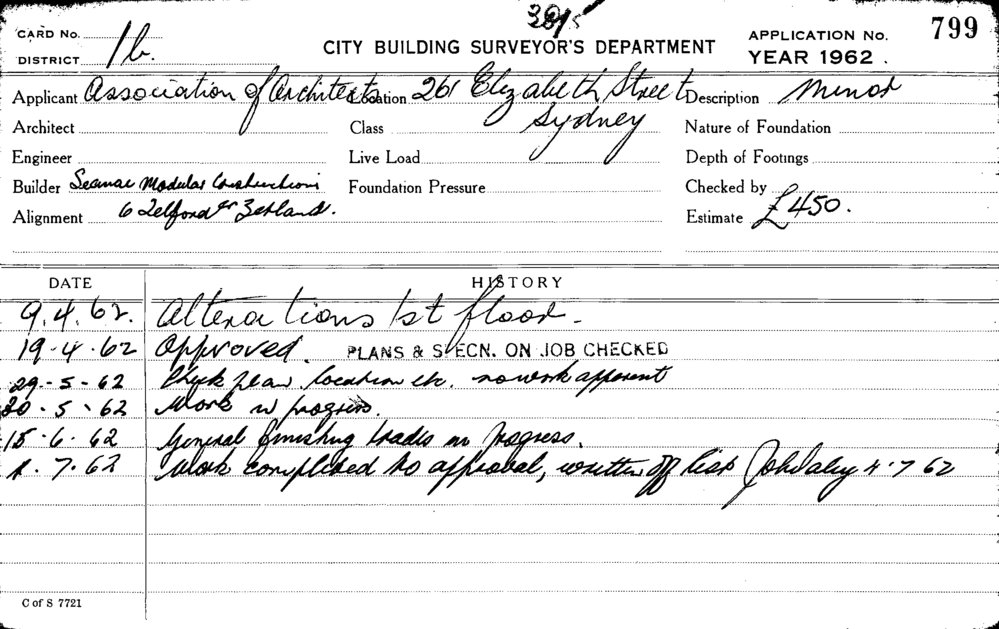 CARD No.
DISTRICT 1b.
CITY BUILDING SURVEYOR'S DEPARTMENT
APPLICATION No. 799
YEAR 1962.
Applicant Association of Architects Location 261 Elizabeth Street Description Minor
Architect Class Sydney Nature of Foundation
Engineer Live Load Depth of Footings
Builder Modular Constructions Foundation Pressure Checked by
Alignment 6 Telford St Zetland. Estimate £450.
DATE HISTORY
9.4.62. Alterations 1st floor.
19.4.62 Approved. PLANS & SPECN. ON JOB CHECKED
29-5-62 Check plan location etc. no work apparent
5.62 Work in progress.
15.6.62 General finishing trades in progress.
7.62 Work completed to approval, written off list 4.7 62
C of S 7721